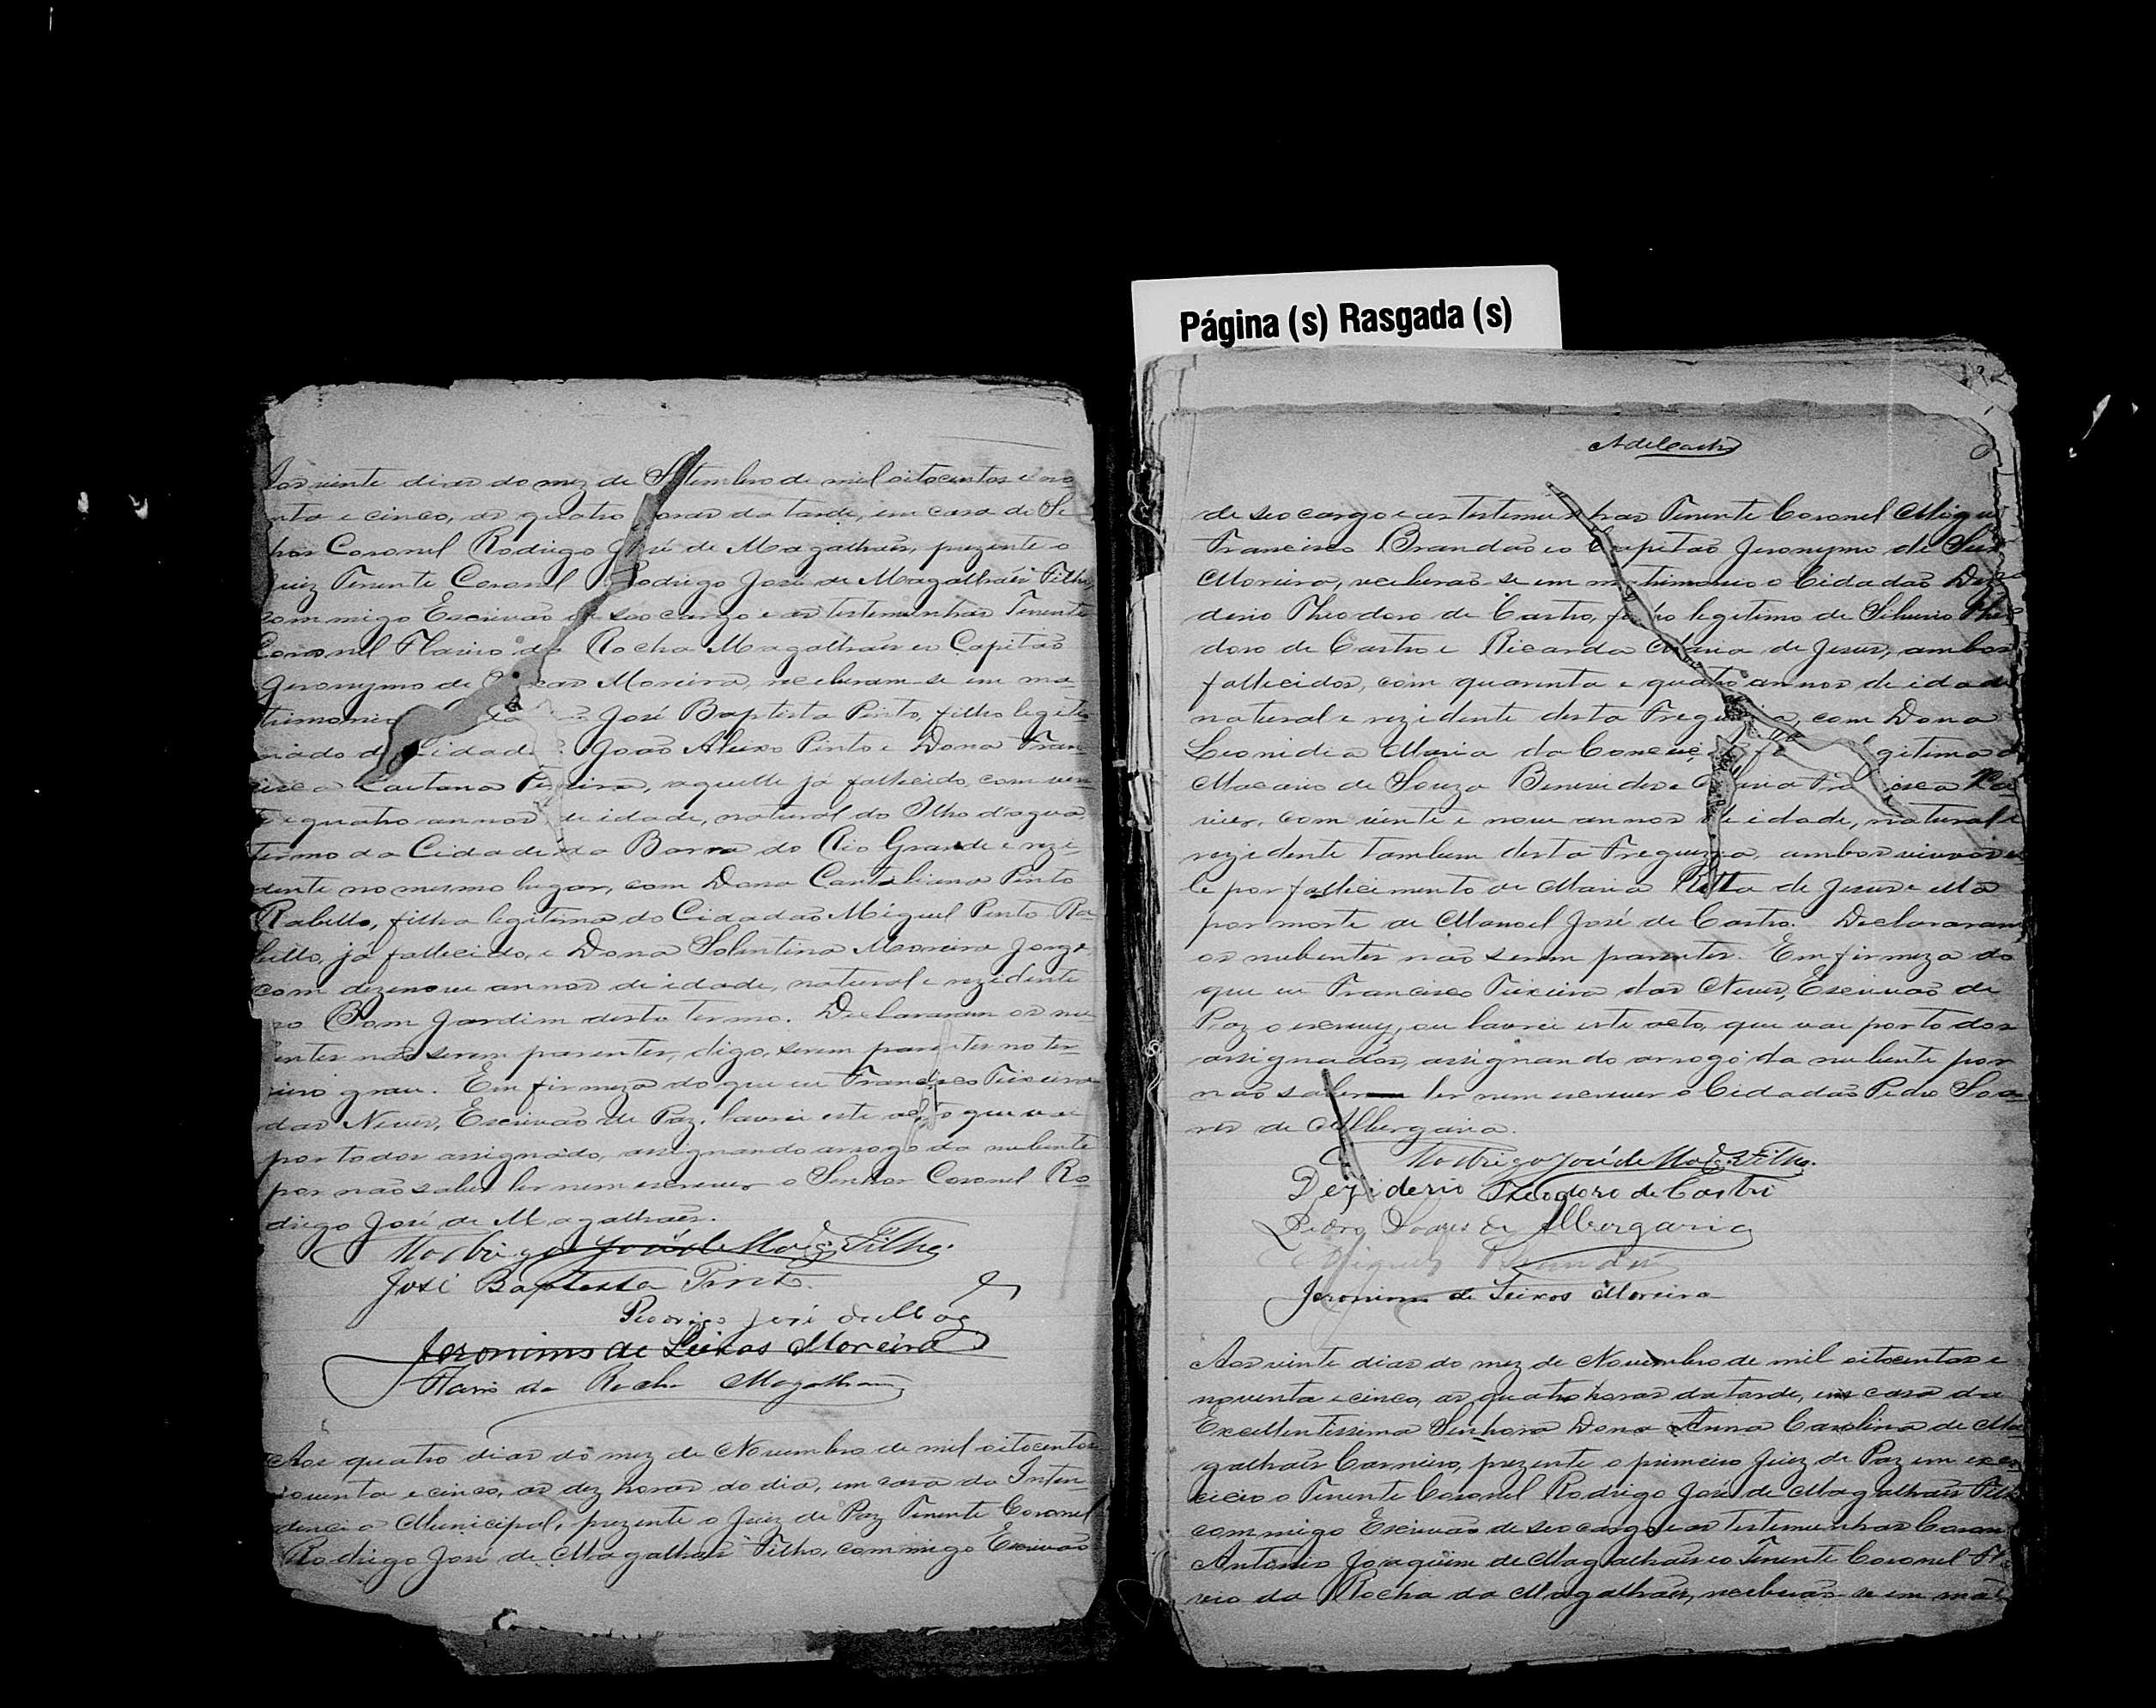 Página (s) Rasgada (s)
Aos vinte dias do mez de Setembro de mil oitocentos e no
nta e cinco, as quatro horas da tarde, em casa do Se
nhor Coronel Rodrigo José de Magalhães, prezente o
Juiz Tenente Coronel Rodrigo José de Magalhães Filho,
commigo Escrivão de seo cargo e as testemunhas Tenente
Coronel Flavio da Rocha Magalhães e o Capitão
Jeronymo de Moreira, receberam-se em ma
trimonio José Baptista Pinto, filho legiti
do Cidadão João Aleixo Pinto e Dona Fran
cisca Caetana Pereira, aquelle já fallecido, com vin
te e quatro annos de idade, natural do Olho d'agua
termo da Cidade da Barra do Rio Grande e rezi-
dente no mesmo lugar, com Dona Pinto
Rabello, filha legitima do Cidadão Miguel Pinto Ra
bello, já fallecido, e Dona Moreira Jorge
com dezenove annos de idade, natural e rezidente
no Bom Jardim deste termo. Declararam os nu
bentes não serem parentes, digo, serem parentes no ter-
ceiro grau. Em firmeza do que eu Francisco Teixeira
das Neves, Escrivão de Paz, lavrei este acto que vae
por todos assignado, assignando arrogo da nubente
por não saber ler nem escrever o Senhor Coronel Ro
drigo José de Magalhães.
Rodrigo José de Mag.es Filho.
José Baptista Pinto.
Rodrigo José de Mag
Jeronimo de Seixas Moreira
Flavio da Rocha Magalhães
Aos quatro dias do mez de Novembro de mil oitocentos
noventa e cinco, as dez horas do dia, em casa da Inten
dencia Municipal, prezente o Juiz de Paz Tenente Coronel
Rodrigo José de Magalhães Filho, commigo Escrivão
de seo cargo e as testemunhas Tenente Coronel Migu
Francisco Brandão e o Capitão Jeronymo de Sei
Moreira, receberão-se em matrimonio o Cidadão Dezi
derio Theodoro de Castro, filho legitimo de Silverio Theo
doro de Castro e Ricarda Maria de Jesus, ambos
fallecidos, com quarenta e quatro annos de idade
natural e rezidente desta Freguezia, com Dona
Leonidia Maria da Conceição legitima d
Macario de Souza Benevides e Maria Francisca Xa
vier, com vinte e nove annos de idade, natural e
rezidente tambem desta Freguezia, ambos viuvos el
le por fallecimento de Maria Ritta de Jesus e ella
por morte de Manoel José de Castro. Declararam
os nubentes não serem parentes. Em firmeza do
que eu Francisco Teixeira das Neves, Escrivão de
Paz o escrevy, ou lavrei este acto, que vae por todos
assignados, assignando arrogo da nubente por
não saber ler nem escrever o Cidadão Pedro Soa
res de Albergaria.
Rodrigo José de Mag.es Filho.
Deziderio Theodoro de Castro
Pedro Soares de Albergaria
Miguel Brandão
Jeronimo de Seixas Moreira
Aos vinte dias do mez de Novembro de mil oitocentos e
noventa e cinco, as quatro horas da tarde, em casa da
Excellentissima Senhora Dona Anna Carolina de Ma
galhães Carneiro, prezente o primeiro Juiz de Paz em exer
cicio o Tenente Coronel Rodrigo José de Magalhães Filho
commigo Escrivão de seo cargo e as testemunhas Coron
Antonio Joaquim de Magalhães e o Tenente Coronel Fla
vio da Rocha da Magalhães, receberão-se em mat